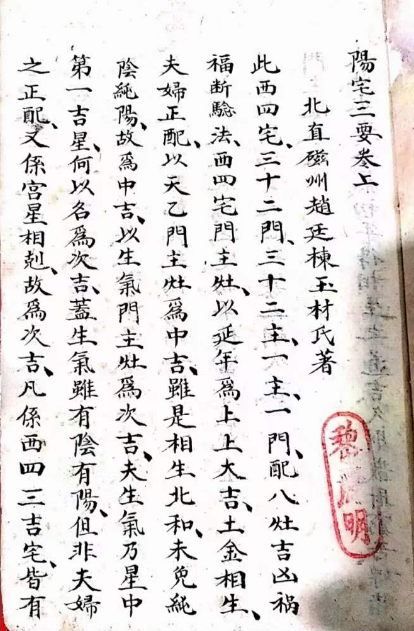 陽宅三要卷上
北直磁州趙廷棟玉材氏著
此西四宅、三十二門、三十二主、一主、一門、配八灶吉凶禍
福断驗法、西四宅門主灶、以延年爲上上大吉、土金相生、
夫婦正配、以天乙門主灶爲中吉、雖是相生北和、未免純
陰純陽、故爲中吉、以生氣門主灶爲次吉、夫生氣乃星中
第一吉星、何以名爲次吉、蓋生氣雖有陰有陽、但非夫婦
之正配、又係宮星相剋、故爲次吉、凡係西四三吉宅、皆有
明